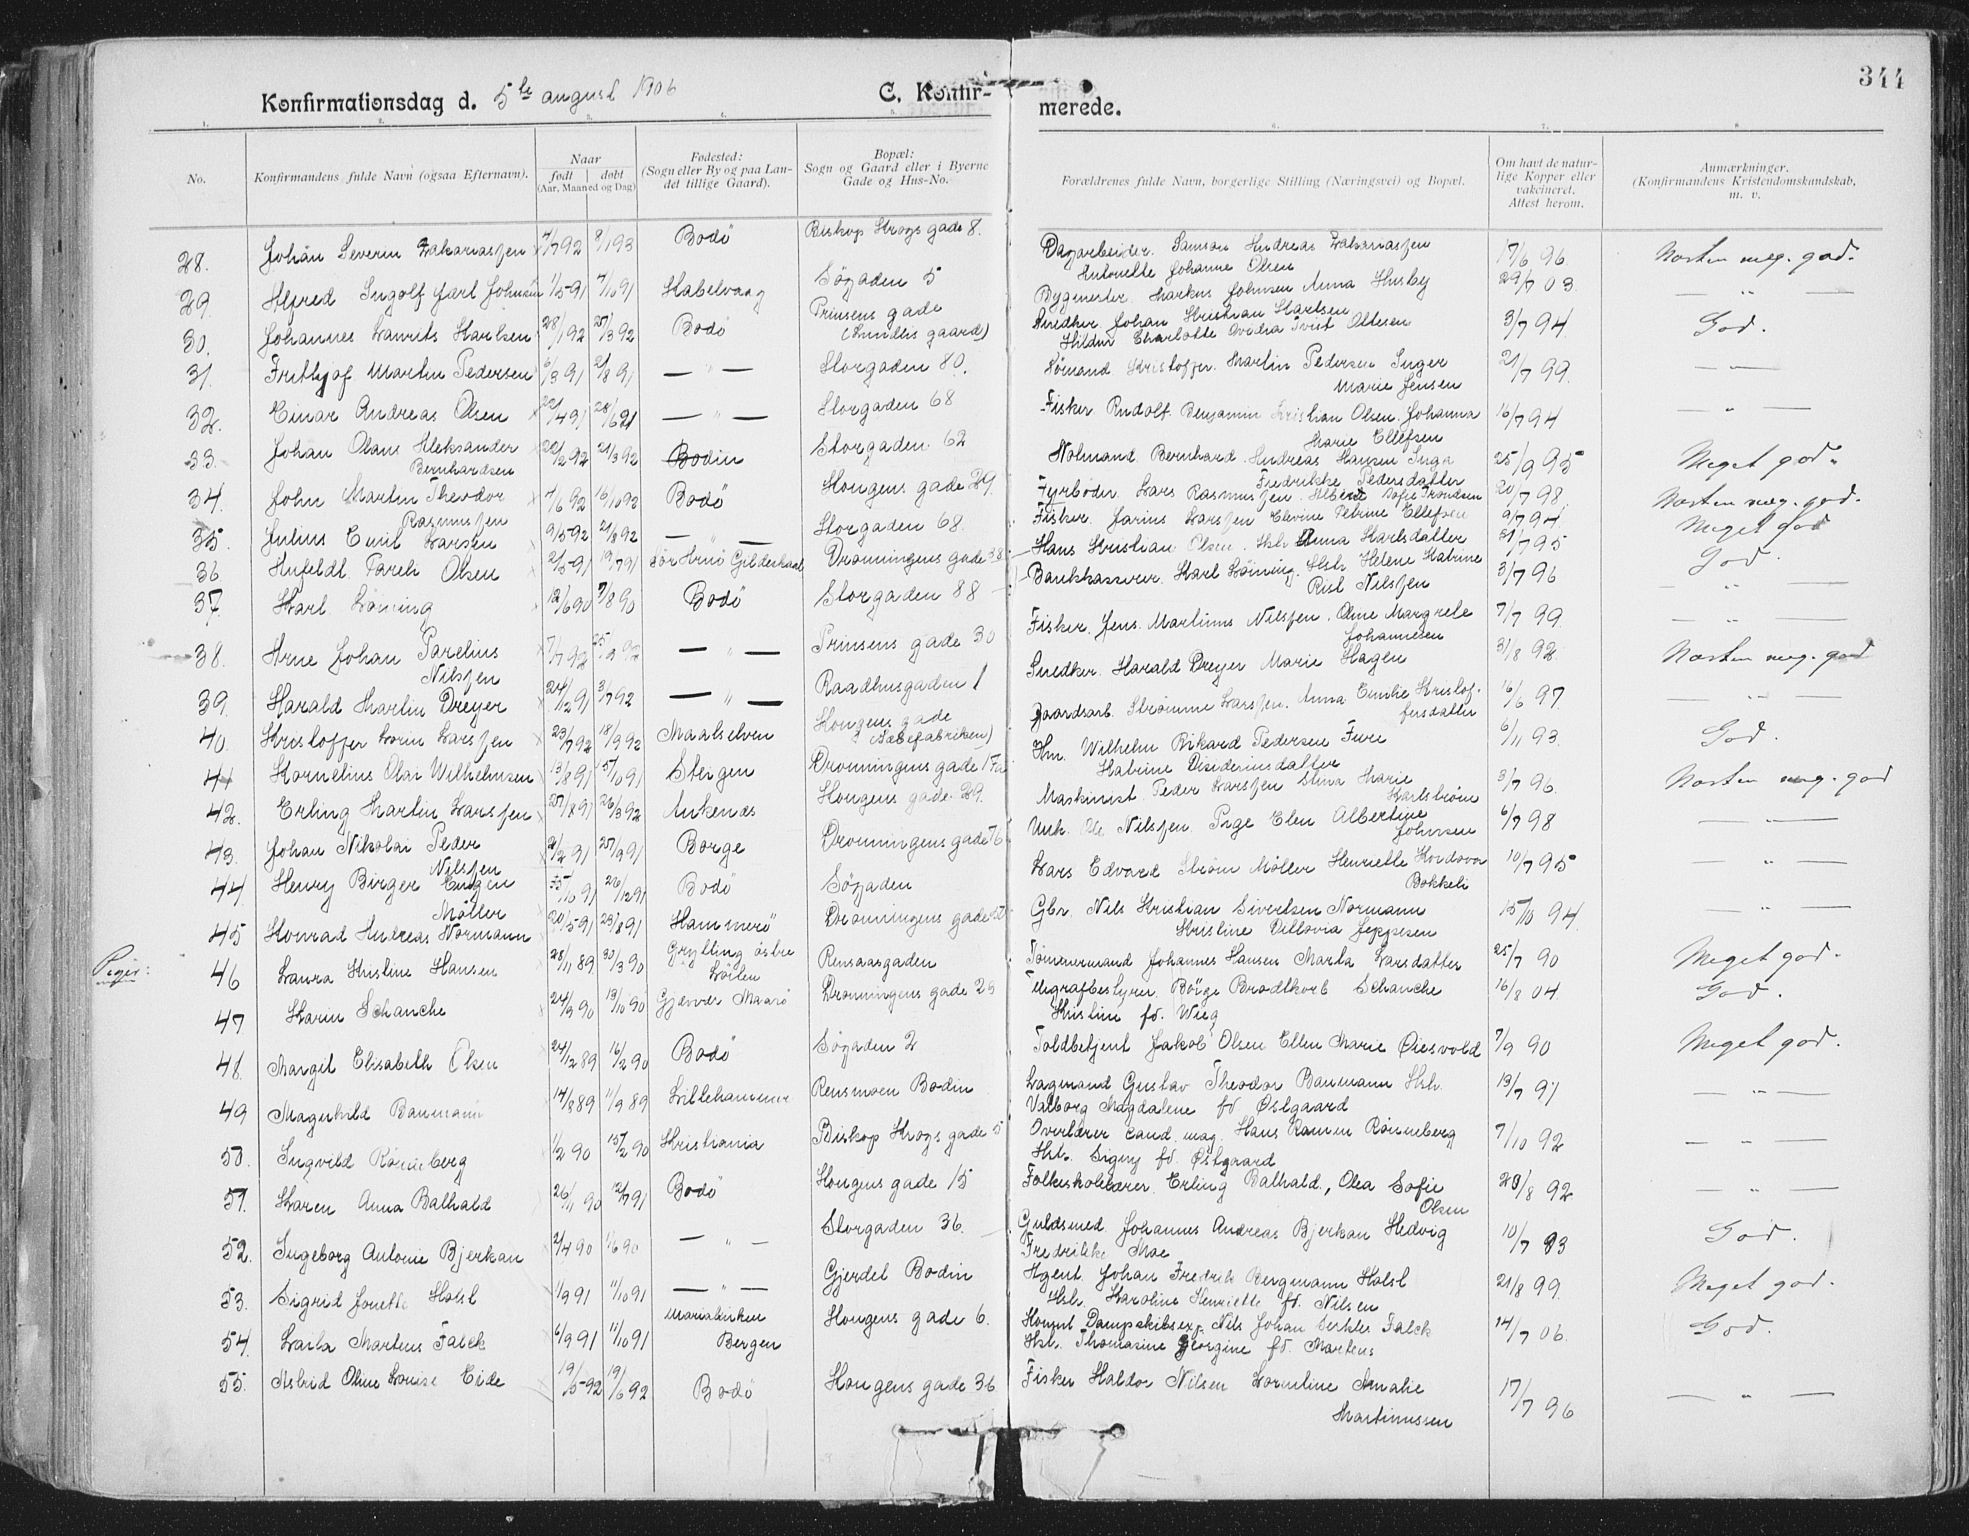 344
Konfirmationsdag d. 5te august 1906
C. Konfir-
merede.
1. 2. 3. 4. 5. 6. 7. 8.
No.
Konfirmandens fulde Navn (ogsaa Efternavn).
Naar
født døbt
(Aar, Maaned og Dag)
Fødested:
(Sogn eller By og paa Lan-
det tillige Gaard).
Bopæl:
Sogn og Gaard eller i Byerne
Gade og Hus-No.
Forældrenes fulde Navn, borgerlige Stilling (Næringsvei) og Bopæl.
Om havt de natur-
lige Kopper eller
vakcineret.
Attest herom.
Anmærkninger.
(Konfirmandens Kristendomskundskab,
m. v.
28. Johan Severin Zakariassen 4/7 92 8/1 93 Bodö Biskop Krogs gade 8.
Dagarbeider. Samson Andreas Zakariassen 17/6 96 Næsten meg. god.
Antonette Johanne Olsen
29. Alfred Ingolf Jarl Johnsen 1/5 91 7/10 91 Kabelvaag Søgaden 5
Bygmester Markus Johnsen Anna Husby 29/7 03. — " —
30. Johannes Laurits Karlsen 28/1 92 27/3 92 Bodö Prinsens gade
Snedker Johan Kristian Karlsen 3/7 94 God.
31. Frithjof Martin Pedersen 6/3 91 21/8 91 — " — Storgaden 80.
Sømand Kristoffer Martin Pedersen Inger 21/7 99. — " —
Marie Jensen
32. Einar Andreas Olsen 22/4 91 28/6 21 — " — Storgaden 68
Fisker Rudolf Benjamin Kristian Olsen. Johanna 16/7 94 — " —
Marie Ellefsen
33. Johan Olaus Aleksander 22/2 92 21/3 92 Bodin Storgaden 62
Bernhardsen
Bernhard Andreas Hansen Inga 25/9 95 Meget god.
Fredrikke Pedersdatter
34. John Martin Theodor 4/6 92 16/10 92 Bodö Kongens gade 29
Rasmussen
Fyrbøder. Lars Rasmussen. 20/7 98. Næsten meg. god.
35. Julius Emil Larsen 9/5-92 21/8 92 — " — Storgaden 68.
Fisker. Jarius Larssen Elevine Petrine Ellefsen 9/7 94 Meget god
36 Olsen 2/5-91 19/7 91 Sør Arnö Gildeskaal Dronningens gade 38
Hans Kristian Olsen. Hstr Anna Karlsdatter 31/7 95 God.
37. Karl Löining 12/6 90 7/8 90 Bodö Storgaden 88
Bankkasserer. Karl Löining. Hstr Helene Katrine 3/7 96 — " —
Nilssen
38. Arne Johan Parelius 7/7 92 25/9 92 — " — Prinsens gade 30
Nilssen
Fisker. Jens Martinus Nilssen. Oline Margrete 7/7 99 — " —
Johannesen
39. Harald Martin Dreyer 24/12 91 3/7 92 — " — Raadhusgaden 1
Snedker Harald Dreyer Marie Hagen 31/8 92 Næsten meg. god
40. Kristoffer Lorin Larssen 23/7 92 18/9 92 Maalselven Kongens gade
Gaardsarb. Strømme Larssen. Anna Emilie Kristof- 16/6 97 — " —
fersdatter
41 Kornelius Olai Wilhelmsen 13/8 91 15/10 91 Steigen Dronningens gade
Hm. Wilhelm Rikard Pedersen Fure 6/11 93. God.
Katrine Desideriusdatter
42. Erling Martin Larssen 27/8 91 26/3 92 Ankenæs Kongens gade 29.
Maskinist Peder Larssen Stina Marie 3/7 96. Næsten meg. god
Karlstrøm
43. Johan Nikolai Peder 2/2 91 27/9 91 Borge Dronningens gade
Nilssen
Nilssen. Pige Elen Albertine 6/7 98 — " —
Johnsen
44. Henry Birger Eugen 26/12 91 Bodö Søgaden
Møller
Lars Edvard Strøm Møller Henriette 10/7 95 — " —
Bokkeli
45 Konrad Andreas Normann 20/5-91 23/8 91 Hammerö Dronningens gade
Gbr. Nils Kristian Sivertsen Normann 15/10 94. — " —
Kristine Jeppesen
Piger:
46 Laura Kristine Hansen 28/11 89 30/3 90 østre Rensaasgaden
Tømmermand Johannes Hansen Marta Larsdatter 25/7 90 Meget god.
47 Karin Schanche 24/9 90 19/10 90 Gjæsvær Maasö Dronningens gade 25
Telegrafbestyrer. Börge Brodtkorb Schanche 16/8 04. God.
Kristine fd. Wiig
48. Margit Elisabeth Olsen 24/12 89 16/2 90 Bodö Søgaden 2
Toldbetjent Jakob Olsen Ellen Marie Øiesvold 7/9 90 Meget god.
49 Magnhild Baumann 14/8 89 1/9 89 Lillehammer Rensmoen Bodin
Lagmand Gustav Theodor Baumann Hstr. 13/7 91 — " —
Valborg Magdalene fd Østgaard
50. Ingvild Rønneberg 1/2 90 15/2 90 Kristiania Biskop Krogs gade 5
Overlærer cand. mag. Hans Ramm Rønneberg 7/10 92 — " —
Hstr. Signy fd. Østgaard
51. Karen Anna Balhald 26/11 90 12/7 91 Bodö Kongens gade 15
Folkeskolelærer. Erling Balhald, Olea Sofie 28/8 92 — " —
Olsen
52. Ingeborg Antonie Bjerkan 2/4 90 1/6 90 — " — Storgaden 36.
Guldsmed Johannes Andreas Bjerkan Hedvig 10/7 93 God.
Fredrikke Moe
53. Sigrid Jonette Holst 1/9 91 11/10 91 — " — Gjerdet Bodin
Agent Johan Fredrik Bergmann Holst 21/8 99. Meget god.
Hstr. Karoline Henriette fd. Nilsen
54. Carla Martens Falck 6/9 91 11/10 91 Mariakirken Kongens gade 6.
Bergen
Dampskibsexp. Nils Johan Falck 14/7 06. God.
Hstr. Thomasine Georgine fd. Martens
55. Astrid Oline Louise Eide 19/5-92 19/6 92 Bodö Kongens gade 36
Fisker Haldor Nilsen Lorentine Amalie 17/7 96 — " —
Martinussen